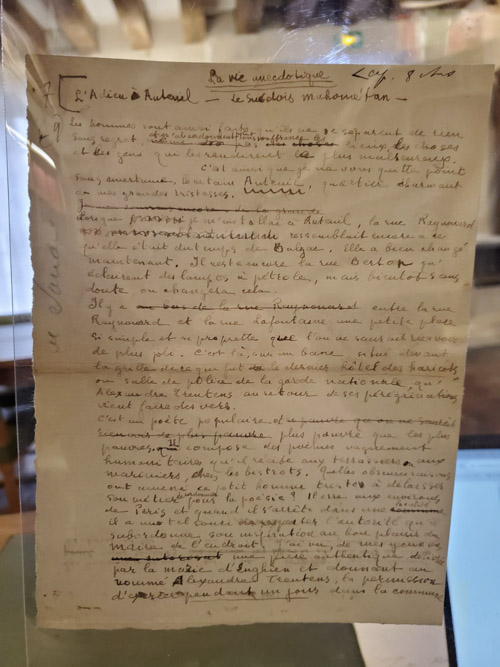 La vie anecdotique
L'Adieu à Auteuil — Le Suédois mahométan —
Les hommes sont ainsi faits qu'ils ne se séparent de rien
sans regret, pas lieux, les choses
et les gens qui les rendirent le plus malheureux.
C'est ainsi que je ne vous quitte point
sans amertume, lointain Auteuil, quartier charmant
de mes grandes tristesses.
lorsque je m'installai à Auteuil, la rue Raynouard
ressemblait encore à ce
qu'elle était du temps de Balzac. Elle a bien changé
maintenant. Il reste encore la rue Berton qu'
éclairent des lampes à pétrole, mais bientôt sans
doute on changera cela.
Il y a au bas de la rue Raynouard entre la rue
Raynouard et la rue Lafontaine une petite place
si simple et si proprette que l'on ne saurait rien voir
de plus joli. C'est là, sur un banc situé devant
la grille de ce que fut le dernier hôtel des haricots
ou salle de police de la garde nationale, qu'
Alexandre Treutens au retour de ses pérégrinations
vient faire des vers.
C'est un poète populaire
plus pauvre que les plus
pauvres, qui compose des poèmes vaguement
humanitaires qu'il récite aux terrassiers ou aux
mariniers, chez les bistrots. Quelles
ont amené ce petit homme triste à délaisser
son métier pour la poésie? Il erre aux environs
de Paris et quand il s'arrête dans une
il a un tel souci l'autorité qu'il
subordonne son inspiration au bon plaisir du
maire de l'endroit. J'ai vu, de mes yeux vu
une pièce authentique
par la mairie d'Enghien et donnant au
nommé Alexandre Treutens, la permission
d' pendant un jour dans la commune